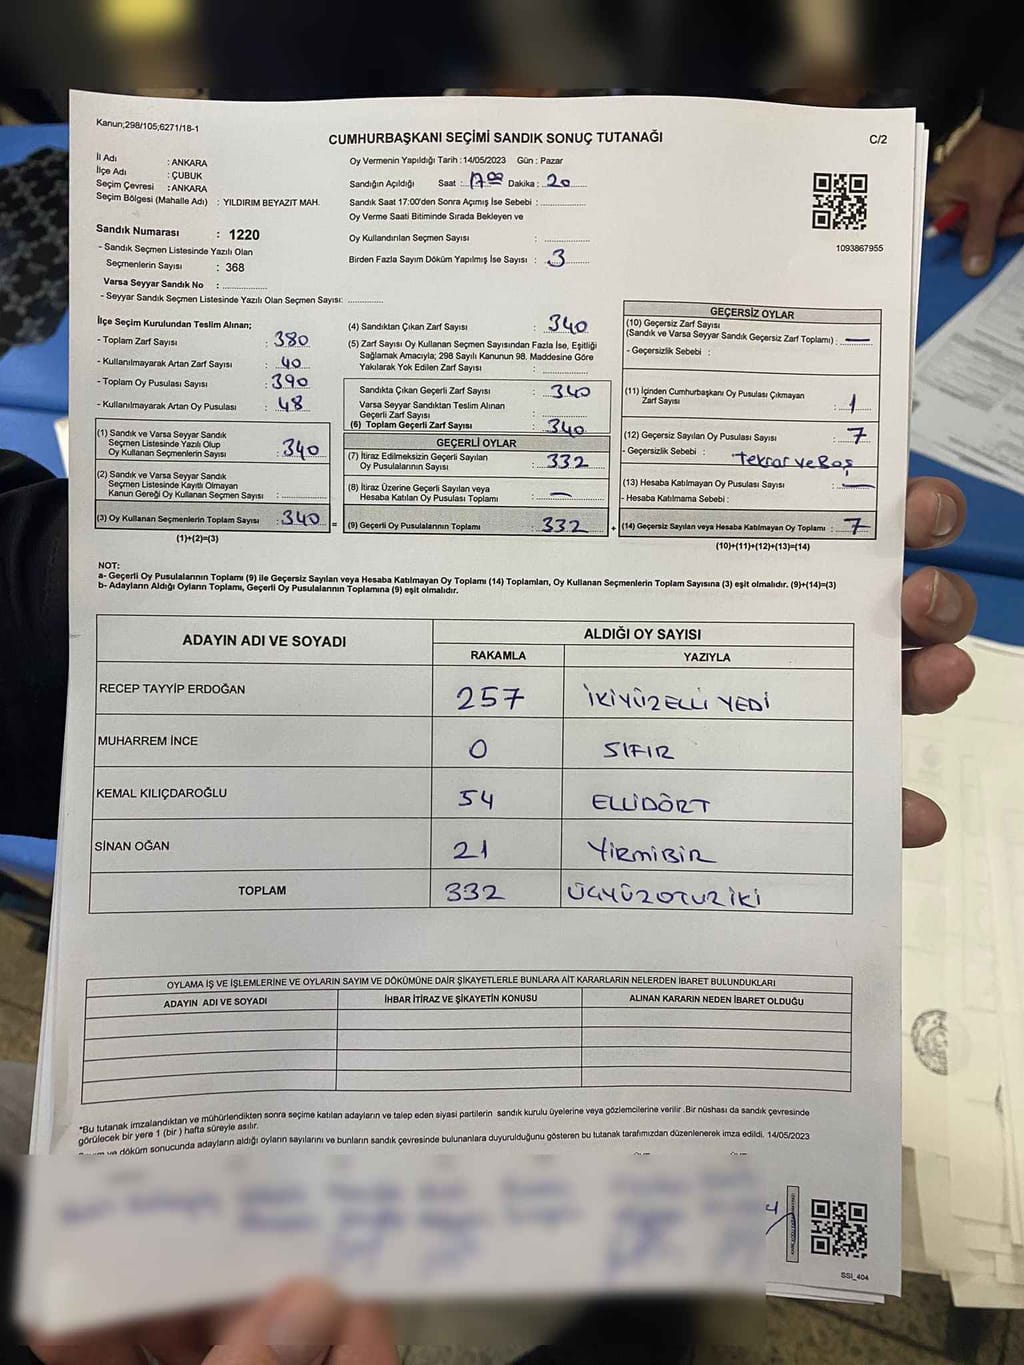 Kanun;298/105;6271/18-1
CUMHURBAŞKANI SEÇİMİ SANDIK SONUÇ TUTANAĞI
C/2
İl Adı : ANKARA
İlçe Adı : ÇUBUK
Seçim Çevresi : ANKARA
Seçim Bölgesi (Mahalle Adı) : YILDIRIM BEYAZIT MAH.
Sandık Numarası : 1220
- Sandık Seçmen Listesinde Yazılı Olan
Seçmenlerin Sayısı : 368
Varsa Seyyar Sandık No : ..............
- Seyyar Sandık Seçmen Listesinde Yazılı Olan Seçmen Sayısı: ............
Oy Vermenin Yapıldığı Tarih :14/05/2023 Gün : Pazar
Sandığın Açıldığı Saat : 17.00 Dakika : 20
Sandık Saat 17:00'den Sonra Açımış İse Sebebi : ..............
Oy Verme Saati Bitiminde Sırada Bekleyen ve
Oy Kullandırılan Seçmen Sayısı : ..............
Birden Fazla Sayım Döküm Yapılmış İse Sayısı : 3
1093867955
İlçe Seçim Kurulundan Teslim Alınan;
- Toplam Zarf Sayısı : 380
- Kullanılmayarak Artan Zarf Sayısı : 40
- Toplam Oy Pusulası Sayısı : 390
- Kullanılmayarak Artan Oy Pusulası : 48
(1) Sandık ve Varsa Seyyar Sandık
Seçmen Listesinde Yazılı Olup
Oy Kullanan Seçmenlerin Sayısı : 340
(2) Sandık ve Varsa Seyyar Sandık
Seçmen Listesinde Kayıtlı Olmayan
Kanun Gereği Oy Kullanan Seçmen Sayısı : ..............
(3) Oy Kullanan Seçmenlerin Toplam Sayısı : 340 =
(1)+(2)=(3)
(4) Sandıktan Çıkan Zarf Sayısı : 340
(5) Zarf Sayısı Oy Kullanan Seçmen Sayısından Fazla İse, Eşitliği
Sağlamak Amacıyla; 298 Sayılı Kanunun 98. Maddesine Göre
Yakılarak Yok Edilen Zarf Sayısı : ..............
Sandıkta Çıkan Geçerli Zarf Sayısı : 340
Varsa Seyyar Sandıktan Teslim Alınan
Geçerli Zarf Sayısı : ..............
(6) Toplam Geçerli Zarf Sayısı : 340
GEÇERLİ OYLAR
(7) İtiraz Edilmeksizin Geçerli Sayılan
Oy Pusulalarının Sayısı : 332
(8) İtiraz Üzerine Geçerli Sayılan veya
Hesaba Katılan Oy Pusulası Toplamı : —
(9) Geçerli Oy Pusulalarının Toplamı : 332 +
GEÇERSİZ OYLAR
(10) Geçersiz Zarf Sayısı
(Sandık ve Varsa Seyyar Sandık Geçersiz Zarf Toplamı) : —
- Geçersizlik Sebebi :
(11) İçinden Cumhurbaşkanı Oy Pusulası Çıkmayan
Zarf Sayısı : 1
(12) Geçersiz Sayılan Oy Pusulası Sayısı : 7
- Geçersizlik Sebebi : Tekrar ve Boş
(13) Hesaba Katılmayan Oy Pusulası Sayısı : —
- Hesaba Katılmama Sebebi :
(14) Geçersiz Sayılan veya Hesaba Katılmayan Oy Toplamı : 7
(10)+(11)+(12)+(13)=(14)
NOT:
a- Geçerli Oy Pusulalarının Toplamı (9) ile Geçersiz Sayılan veya Hesaba Katılmayan Oy Toplamı (14) Toplamları, Oy Kullanan Seçmenlerin Toplam Sayısına (3) eşit olmalıdır. (9)+(14)=(3)
b- Adayların Aldığı Oyların Toplamı, Geçerli Oy Pusulalarının Toplamına (9) eşit olmalıdır.
ADAYIN ADI VE SOYADI
ALDIĞI OY SAYISI
RAKAMLA YAZIYLA
RECEP TAYYİP ERDOĞAN 257 İKİYÜZELLİ YEDİ
MUHARREM İNCE 0 SIFIR
KEMAL KILIÇDAROĞLU 54 ELLİDÖRT
SİNAN OĞAN 21 YİRMİBİR
TOPLAM 332 ÜÇYÜZOTUZİKİ
OYLAMA İŞ VE İŞLEMLERİNE VE OYLARIN SAYIM VE DÖKÜMÜNE DAİR ŞİKAYETLERLE BUNLARA AİT KARARLARIN NELERDEN İBARET BULUNDUKLARI
ADAYIN ADI VE SOYADI İHBAR İTİRAZ VE ŞİKAYETİN KONUSU ALINAN KARARIN NEDEN İBARET OLDUĞU
*Bu tutanak imzalandıktan ve mühürlendikten sonra seçime katılan adayların ve talep eden siyasi partilerin sandık kurulu üyelerine veya gözlemcilerine verilir .Bir nüshası da sandık çevresinde
görülecek bir yere 1 (bir ) hafta süreyle asılır.
ve döküm sonucunda adayların aldığı oyların sayılarını ve bunların sandık çevresinde bulunanlara duyurulduğunu gösteren bu tutanak tarafımızdan düzenlenerek imza edildi. 14/05/2023
SSI_404